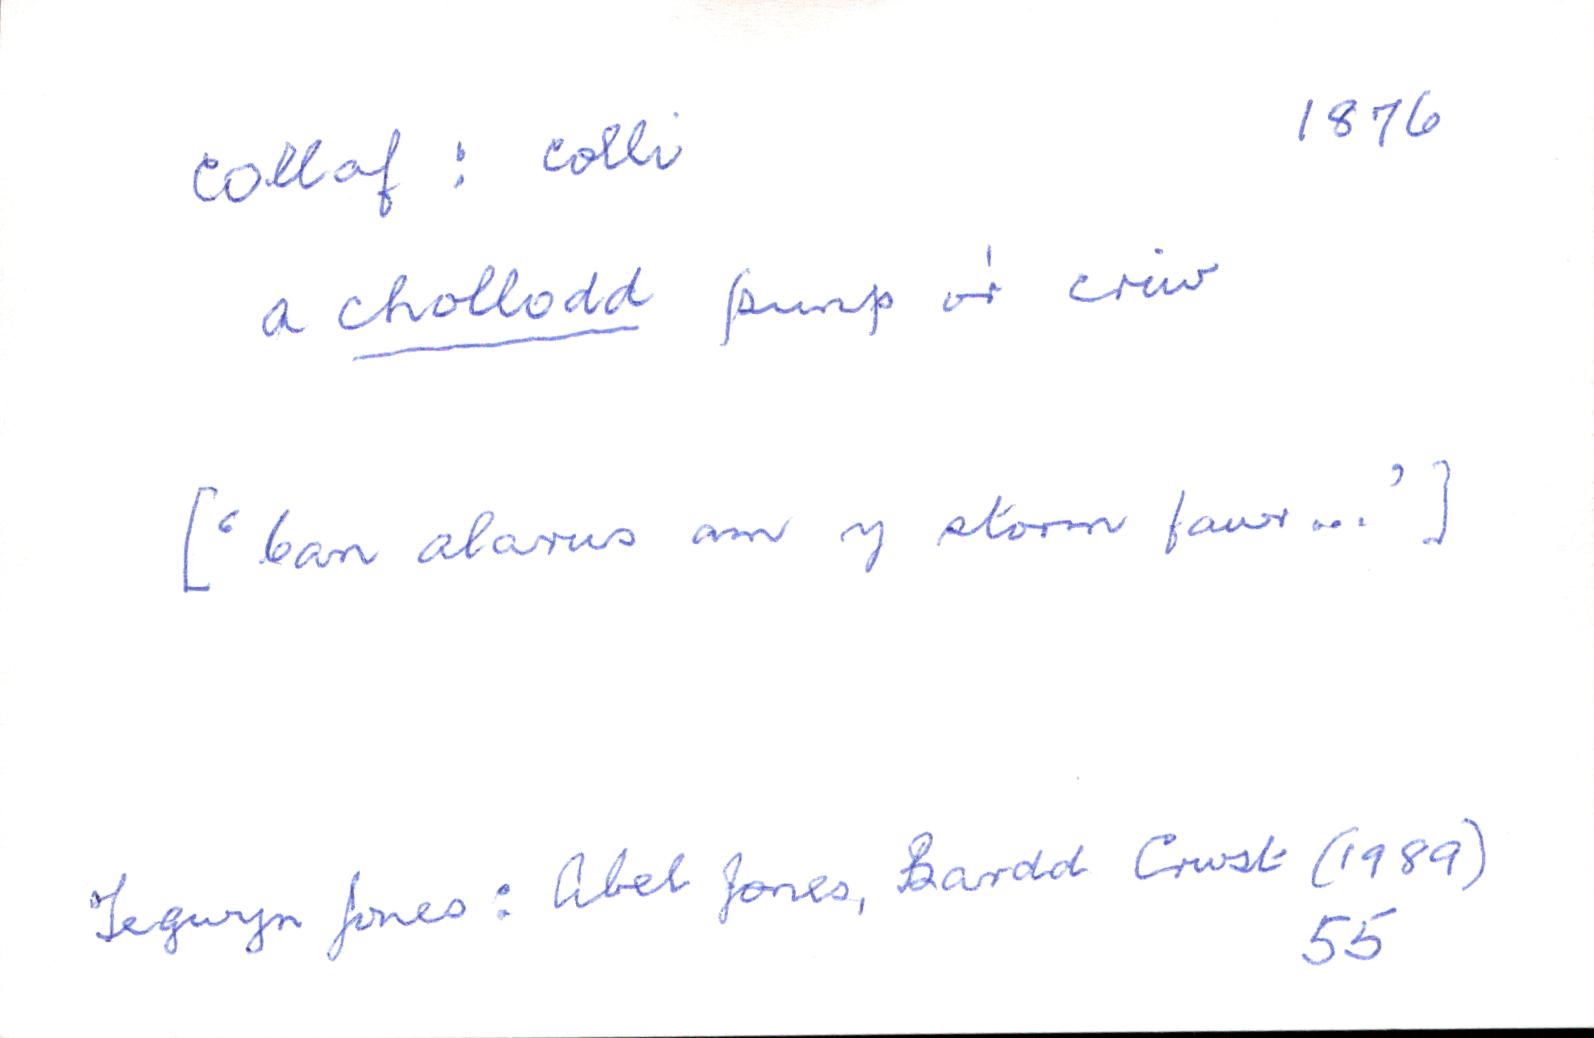 collaf : colli 1876
a chollodd pump o'r criw
['Can alarus am y storm fawr...']
Tegwyn Jones: Abel Jones, Bardd Crwst (1989)
55